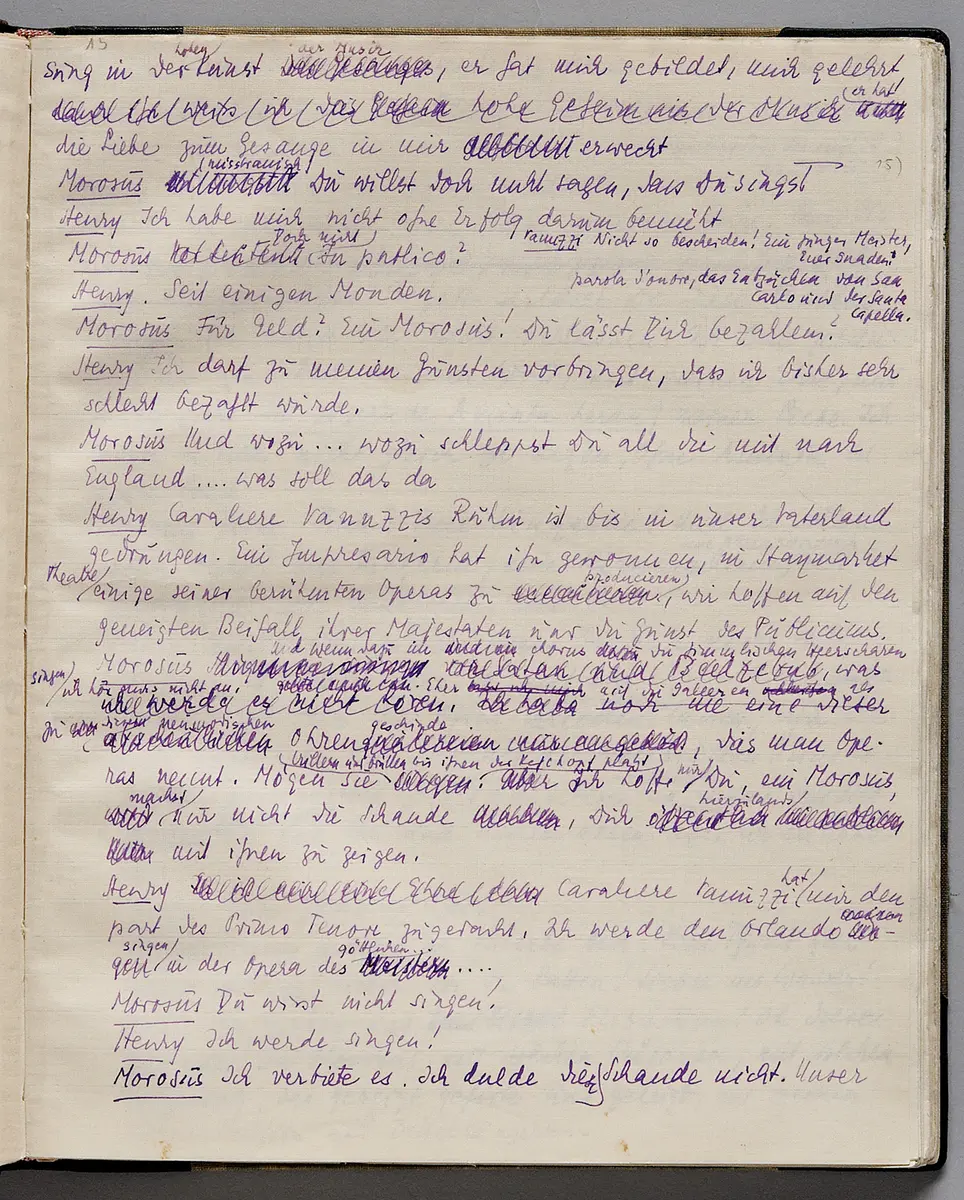 15
hohen der Musik
sung in der Kunst des Gesanges, er hat mich gebildet, mich gelehrt
das hohe Geheimnis der Musik er hat
die Liebe zum Gesange in mir erweckt
misstrauisch 15)
Morosus Du willst doch nicht sagen, dass Du singst
Henry Ich habe mich nicht ohne Erfolg darum bemüht
Doch nicht
Morosus in publico?
Vanuzzi Nicht so bescheiden! Ein junger Meister,
Euer Gnaden!
parola d'onore, das Entzücken von San
Carlo und der Santa
Capella.
Henry. Seit einigen Monden.
Morosus Für Geld? Ein Morosus! Du lässt Dich bezahlen?
Henry Ich darf zu meinen Gunsten vorbringen, dass ich bisher sehr
schlecht bezahlt wurde.
Morosus Und wozu ... wozu schleppst Du all die mit nach
England .... was soll das da
Henry Cavaliere Vanuzzis Ruhm ist bis in unser Vaterland
gedrungen. Ein Impresario hat ihn gewonnen, in Haymarket
Theatre producieren
einige seiner berühmten Operas zu , wir hoffen auf den
geneigten Beifall ihrer Majestäten und die Gunst des Publicums.
und wenn dazu im chorus die himmlischen Heerscharen
Morosus Satan und Beelzebub, was
singen, ich hör mirs nicht an. Eher auf die Galeeren als
werde es nicht hören. Ich habe noch nie eine dieser
zu diesen neumodischen geschinde
Ohrenquälereien , das man Ope-
trillern und brüllen bis ihnen der Kehlkopf platzt
ras nennt. Mögen sie . Aber ich hoffe nur Du, ein Morosus,
machst hierzulande
nur nicht die Schande machen, Dich öffentlich
mit ihnen zu zeigen.
hat
Henry Cavaliere Vanuzzi mir den
part des Primo Tenore zugedacht. Ich werde den Orlando
singen göttlichen...
gen in der Opera des Meisters ....
Morosus Du wirst nicht singen!
Henry Ich werde singen!
Morosus Ich verbiete es. Ich dulde diese Schande nicht. Unser